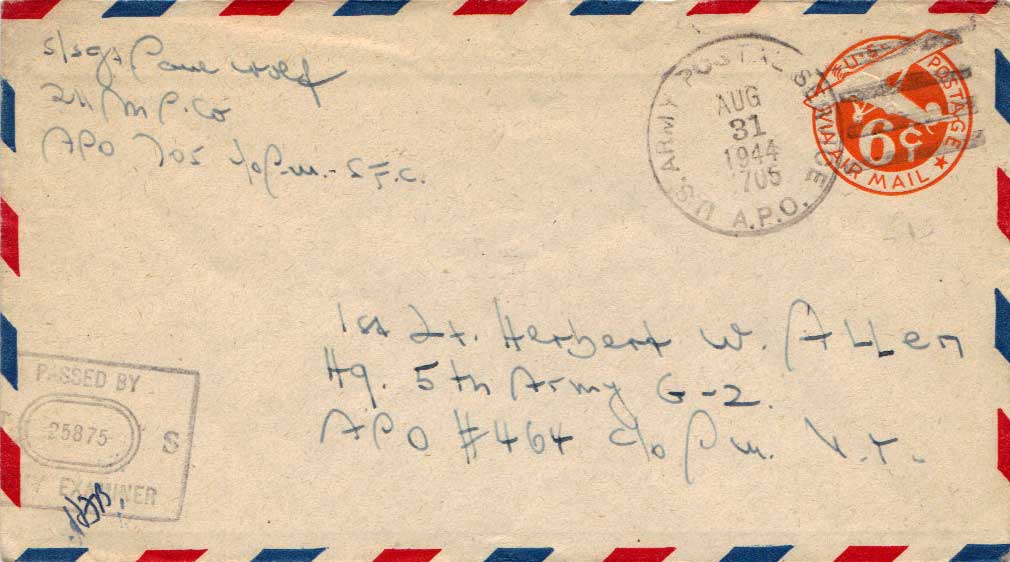 S/Sgt Paul Wolf
211 M P. Co
APO 705 c/o P.M. - S F. C.
U.S. ARMY POSTAL SERVICE
AUG
31
1944
705
A.P.O.
U.S. POSTAGE
6c
VIA AIR MAIL
1st Lt. Herbert W. Allen
Hq. 5th Army G-2.
APO #464 c/o P.M. N.Y.
PASSED BY
25875
S
EXAMINER